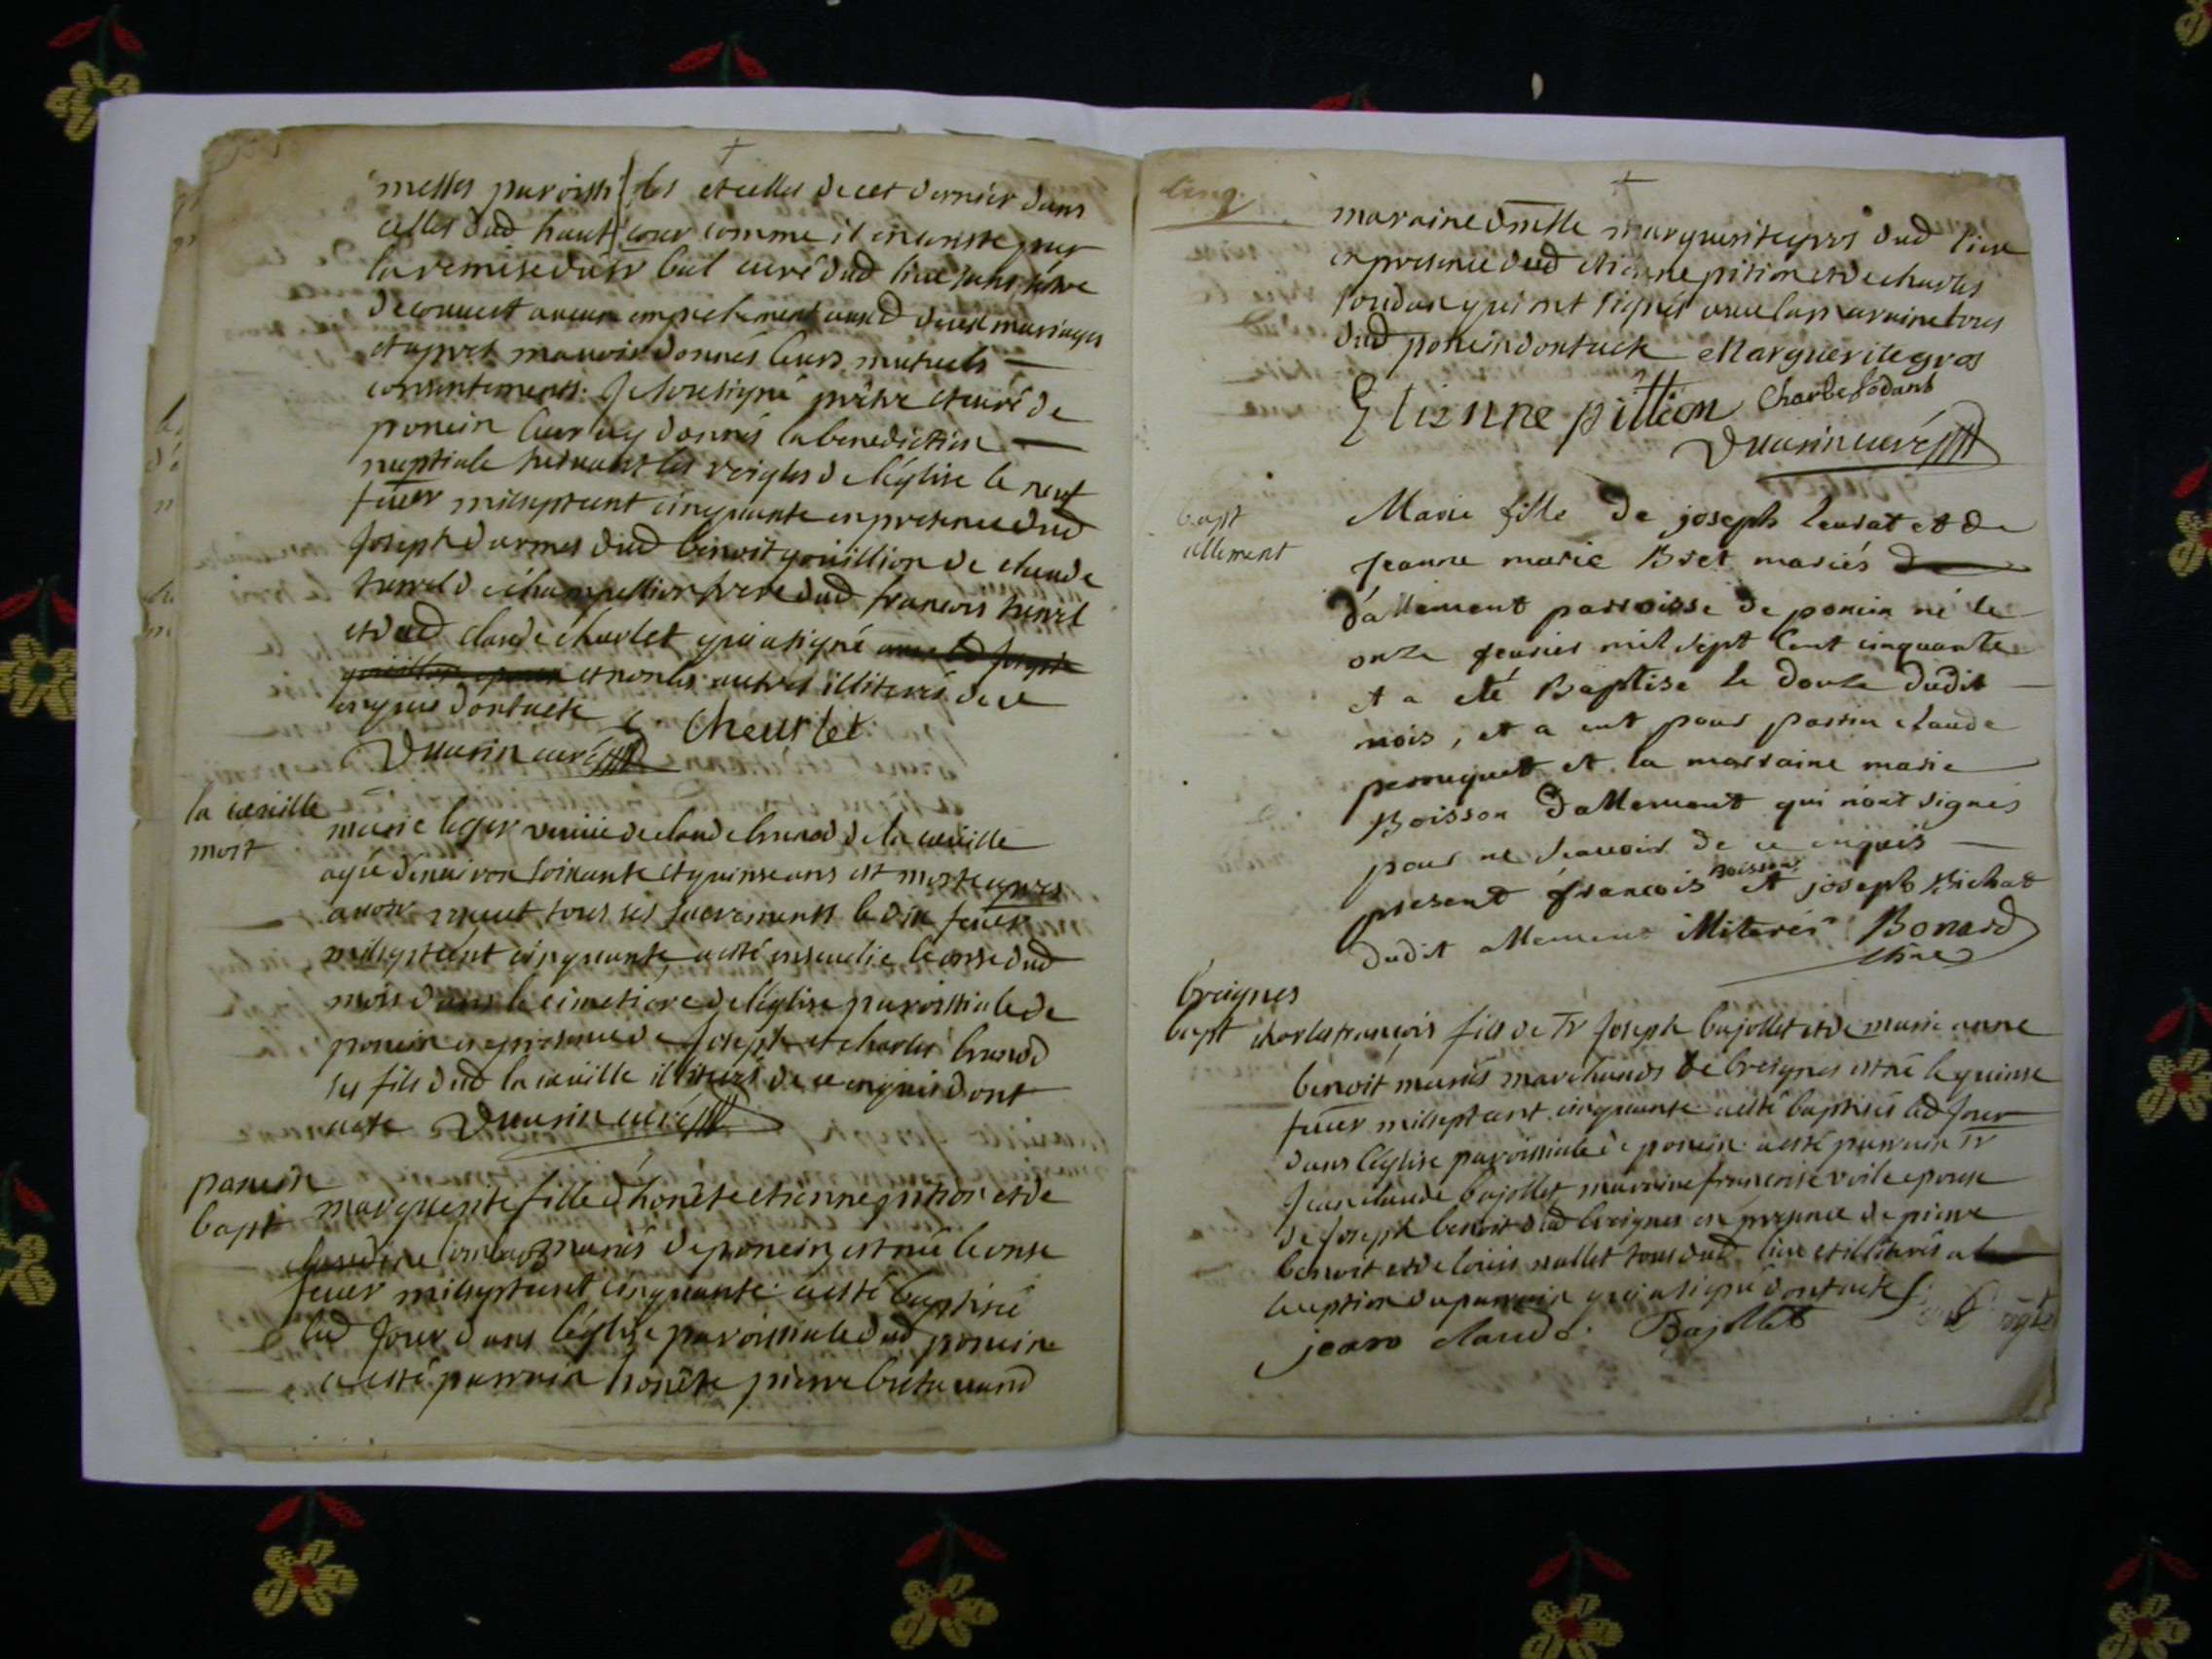 messes paroissi les et celles de cet dernier dans
celles dud haut cour comme il en conste par
la remise du sr bal curé dud lieu sans s'être
decouvert aucun empechement auxd deux mariages
et apres m'avoir donnés leurs mutuels
consentements. Je soussigné prêtre et curé de
poncin leur ay donnés la benediction
nuptiale suivant les reigles de l'église le neuf
fever mil sept cent cinquante en presence dud
Joseph darmes dud benoit gouillion de claude
frere dud francois
et dud claude charlet qui a signé
et non les autres illiterés de ce
enquis dont acte C Cheurlet
Duvrin curé
la cueille
mort
marie leger veuve de claude brunod de la cueille
agée d'environ soixante et quinse ans est morte apres
avoir receut tous ses sacrements le dix fever
mil sept cent cinquante a esté ensevelie le onse dud
mois dans le cimetiere de l'église paroissiale de
poncin en presence de Joseph et charles brunod
ses fils dud la cueille illiterés de ce enquis dont
acte Duvrin curé
poncin
bapt
marguerite fille d'honête etienne pition et de
claudine mariés de poncin est née le onse
fever mil sept cent cinquante a esté baptisée
led Jour dans l'église paroissiale dud poncin
a esté parrain honête pierre
cinq
maraine dmelle marguerite gros dud lieu
en presence dud etienne pition et de charles
soudan qui ont signés avec la marraine tous
dud poncin dont acte Marguerite gros
Etienne pittion Charle sodant
Duvrin curé
bapt
allement
Marie fille de joseph leurat et de
jeanne marie Bret mariés
d'allement parroisse de poncin né le
onze fevrier mil sept cent cinquante
et a eté Baptise le douze dudit
mois, et a eut pour parrin claude
perruquet et la marraine marie
Boisson d'allement qui n'ont signés
pour ne scavoir de ce enquis
present francois Boisson et joseph Bichat
dudit allement illiterés Bonard
vicre
breignes
bapt
charles françois fils de sr Joseph bajollet et de marie anne
benoit mariés marchands de breignes est né le quinse
fever mil sept cent cinquante a esté baptisés led Jour
dans l'église paroissiale de poncin a esté parrain sr
Jean claude bajollet, marraine francoise epouse
de Joseph benoit dud breignes en presence de pierre
benoit et de louis mallet tous dud lieu et illiterés a l
exeption du parrain qui a signé dont acte
jean claude Bajollet